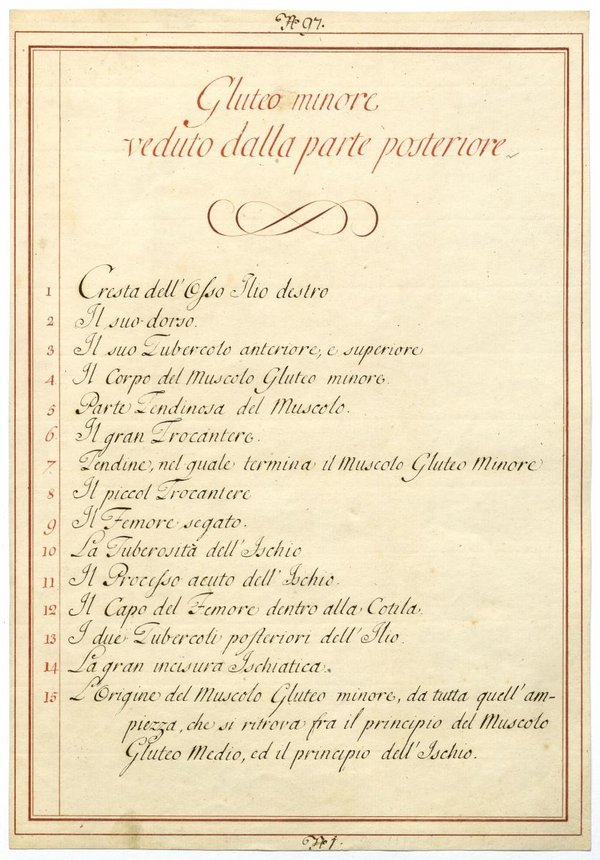 N 97.
Gluteo minore
veduto dalla parte posteriore
1 Cresta dell'Osso Ilio destro
2 Il suo dorso.
3 Il suo Tubercolo anteriore, e superiore
4 Il Corpo del Muscolo Gluteo minore.
5 Parte Tendinosa del Muscolo.
6 Il gran Trocantere.
7 Tendine, nel quale termina il Muscolo Gluteo Minore
8 Il piccol Trocantere
9 Il Femore segato.
10 La Tuberosità dell'Ischio
11 Il Processo acuto dell'Ischio.
12 Il Capo del Femore dentro alla Cotila.
13 I due Tubercoli posteriori dell'Ilio.
14 La gran incisura Ischiatica.
15 L'Origine del Muscolo Gluteo minore, da tutta quell'am-
piezza, che si ritrova fra il principio del Muscolo
Gluteo Medio, ed il principio dell'Ischio.
N 1.